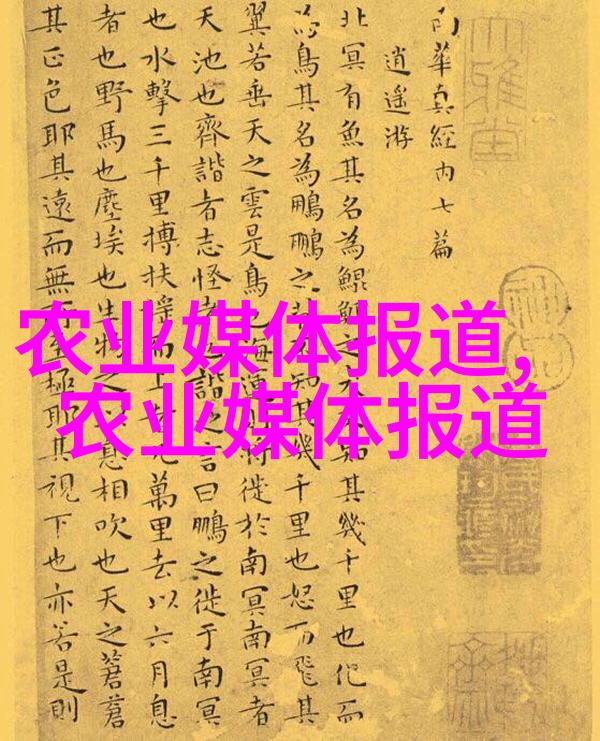 南華真經内七篇
逍遥游
北冥有魚其名為鯤鯤之大不知其幾千里也化而
為鳥其名為鵬鵬之背不知其幾千里也怒而飛其
翼若垂天之雲是鳥也海運則將徙於南冥南冥者
天池也齊諧者志怪者也諧之言曰鵬之徙于南冥
也水擊三千里搏扶摇而上者九萬里去以六月息
者也野馬也塵埃也生物之以息相吹也天之蒼蒼
其正色耶其遠而無所至極耶其視下也亦若是則
农业媒体报道,
农业媒体报道